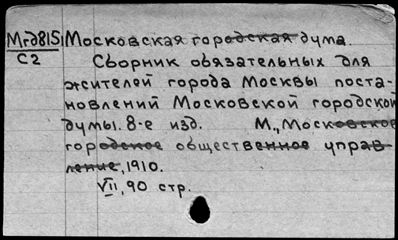 Мгд815 Московская городская дума.
С2 Сборник обязательных для
жителей города Москвы поста-
новлений Московской городской
думы. 8-е изд. М., Московское
городское общественное управ-
ление, 1910.
VII, 90 стр.